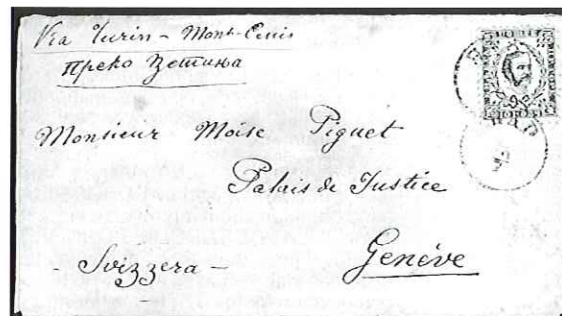 Via Turin - Mont-Cenis
преко Цетиња
Monsieur Moise Piguet
Palais de Justice
Genève
- Svizzera -